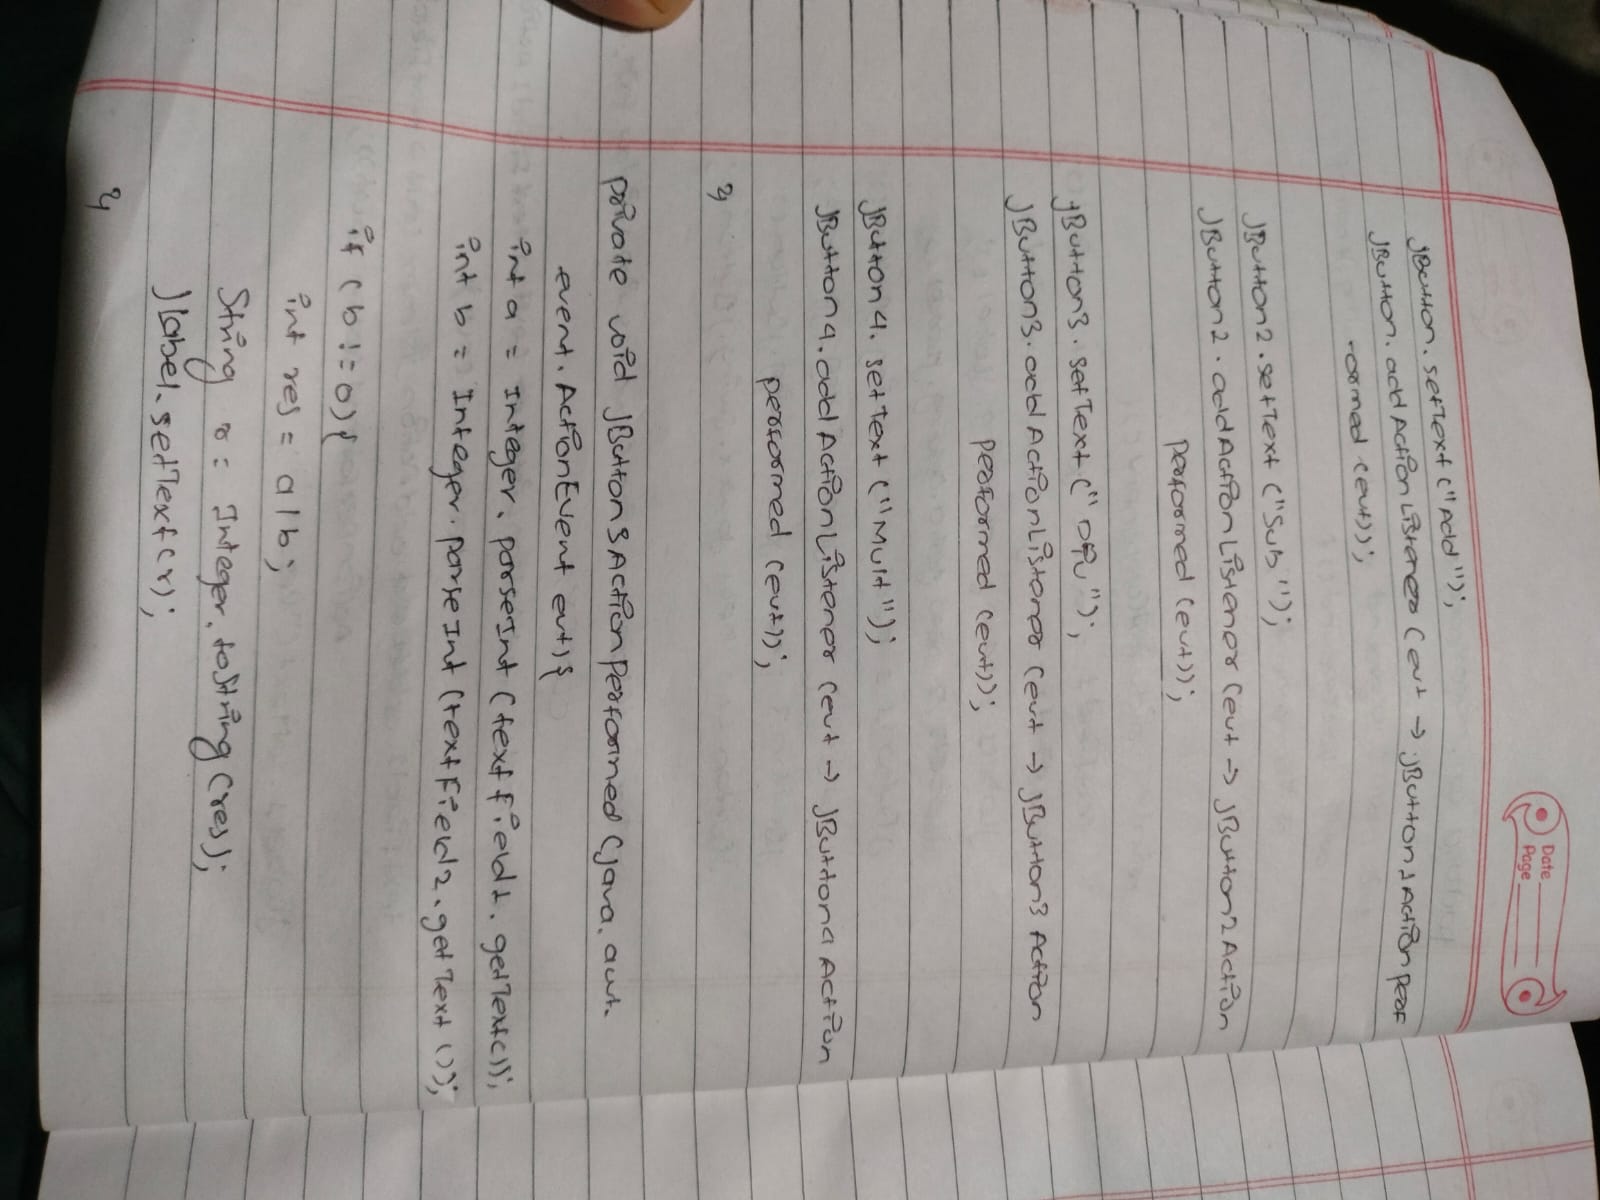 Date
Page
jButton.setText("Add");
jButton.addActionListener(evt → jButton1Actionperf
-ormed(evt));
jButton2.setText("Sub");
jButton2.addActionListener(evt → jButton2Action
performed(evt));
jButton3.setText("Div");
jButton3.addActionListener(evt → jButton3Action
performed(evt));
jButton4.setText("Mult");
jButton4.addActionListener(evt → jButton4Action
performed(evt));
}
private void jButton3ActionPerformed(java.awt.
event.ActionEvent evt){
int a = Integer.parseInt(textField1.getText());
int b = Integer.parseInt(textField2.getText());
if(b!=0){
int res = a/b;
String r = Integer.toString(res);
jlabel.setText(r);
}